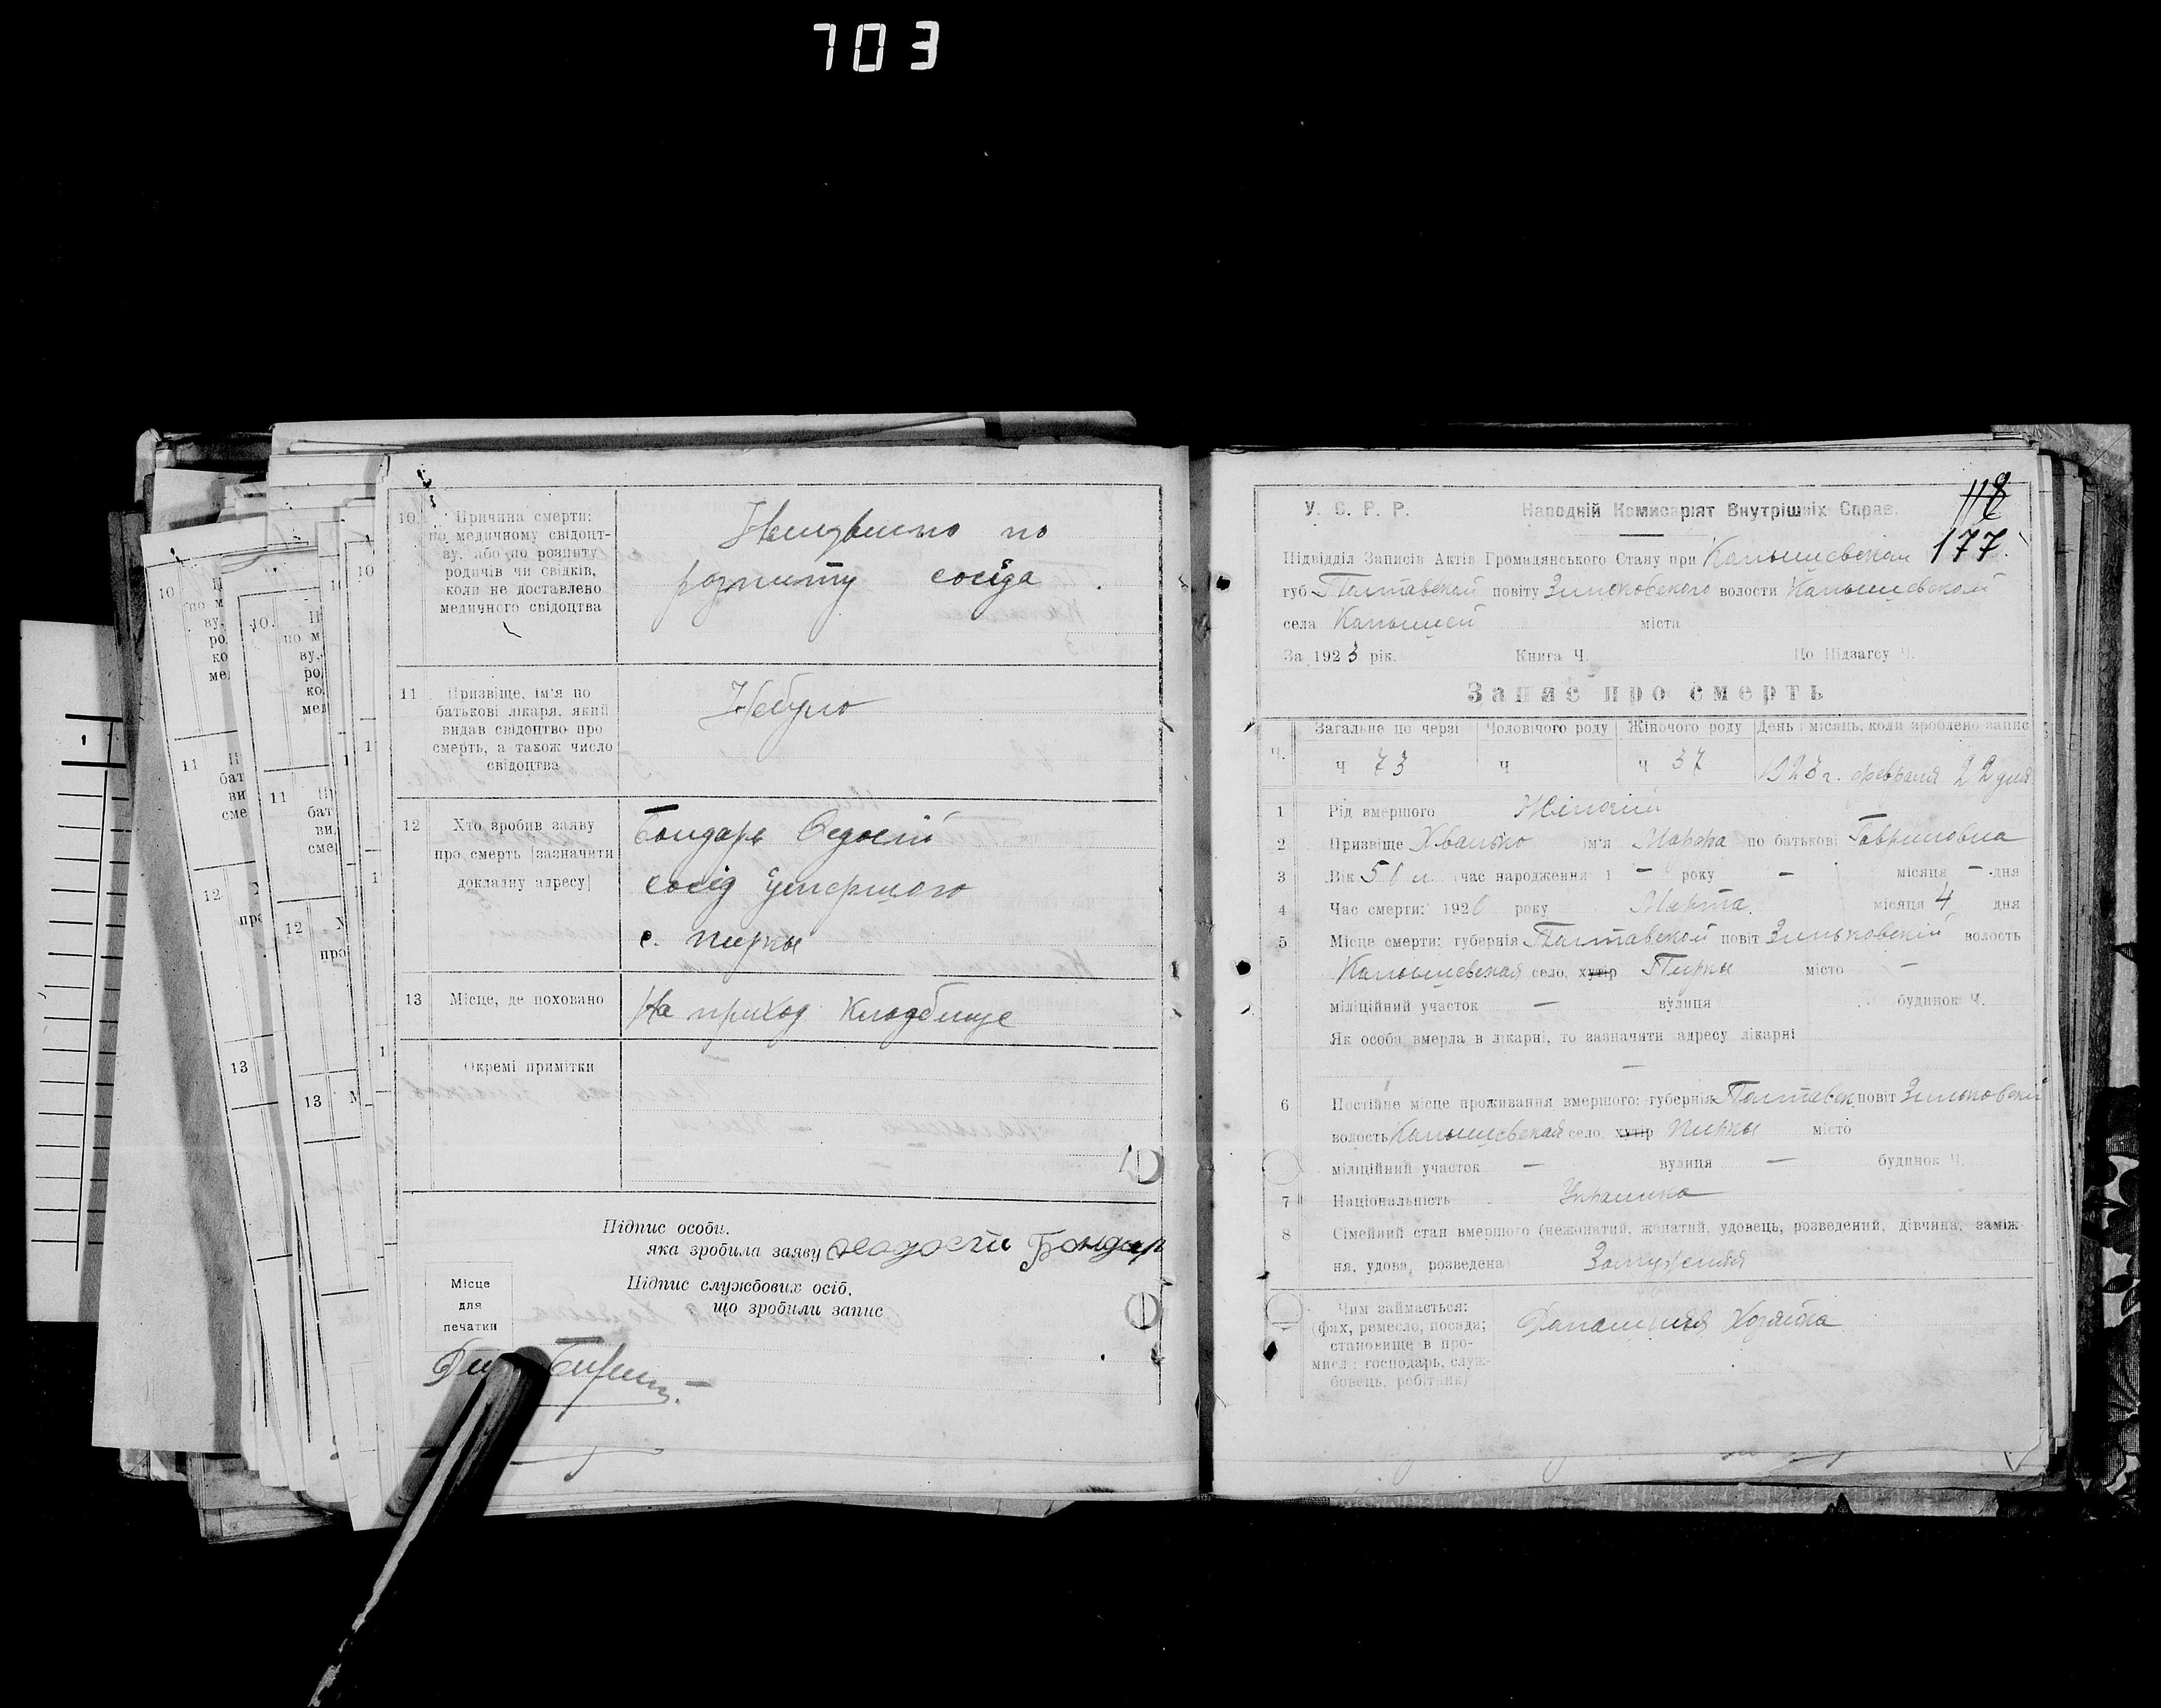 703
10. Причина смерти:
по медичному свідоцт-
ву, або по розпиту
родичів чи свідків,
коли не доставлено
медичного свідоцтва
по
розпиту сосіда
11 Призвіще, ім'я по
батькові лікаря, який
видав свідоцтво про
смерть, а також число
свідоцтва
Небуло
12 Хто зробив заяву
про смерть [зазначити
докладну адресу]
Бондарь Федосій
сосід умершого
с. Пирки
13 Місце, де поховано
На приход кладбище
Окремі примітки
Підпис особи,
яка зробила заяву Бондар
Підпис службових осіб,
що зробили запис
Місце
для
печатки
118
177
У. С. Р. Р. Народній Комисаріят Внутрішніх Справ.
Підвідділ Записів Актів Громадянського Стану при
губ Полтавской повіту Зиньковского волости
села міста
За 1923 рік. Книга Ч. По Підзагсу Ч.
Запис про смерть
Ч. Загальне по черзі Чоловічого роду Жіночого роду День і місяць, коли зроблено запис
Ч 73 Ч Ч 37 1923 г. февраля 22 дня
1 Рід вмершого Жіночій
2 Призвіще Хванько ім'я Марфа по батькові Гавриловна
3 Вік час народження 1 – року – місяця – дня
4 Час смерти: 192 року Марта місяця 4 дня
5 Місце смерти: губернія Полтавской повіт Зиньковській волость
село, хутір Пирки місто –
міліційний участок – вулиця будинок Ч.
Як особа вмерла в лікарні, то зазначити адресу лікарні
–
6 Постійне місце проживання вмершого: губернія Полтавск повіт Зиньковскій
волость село, хутір Пирки місто
міліційний участок – вулиця – будинок Ч.
7 Національність Украинка
8 Сімейний стан вмершого (нежонатий, жонатий, удовець, розведений, дівчина, заміж-
ня, удова, розведена Замужняя
Чим займається:
(фах, ремесло, посада;
становище в про-
мислі: господарь, служ-
бовець, робітник)
Хозяйка